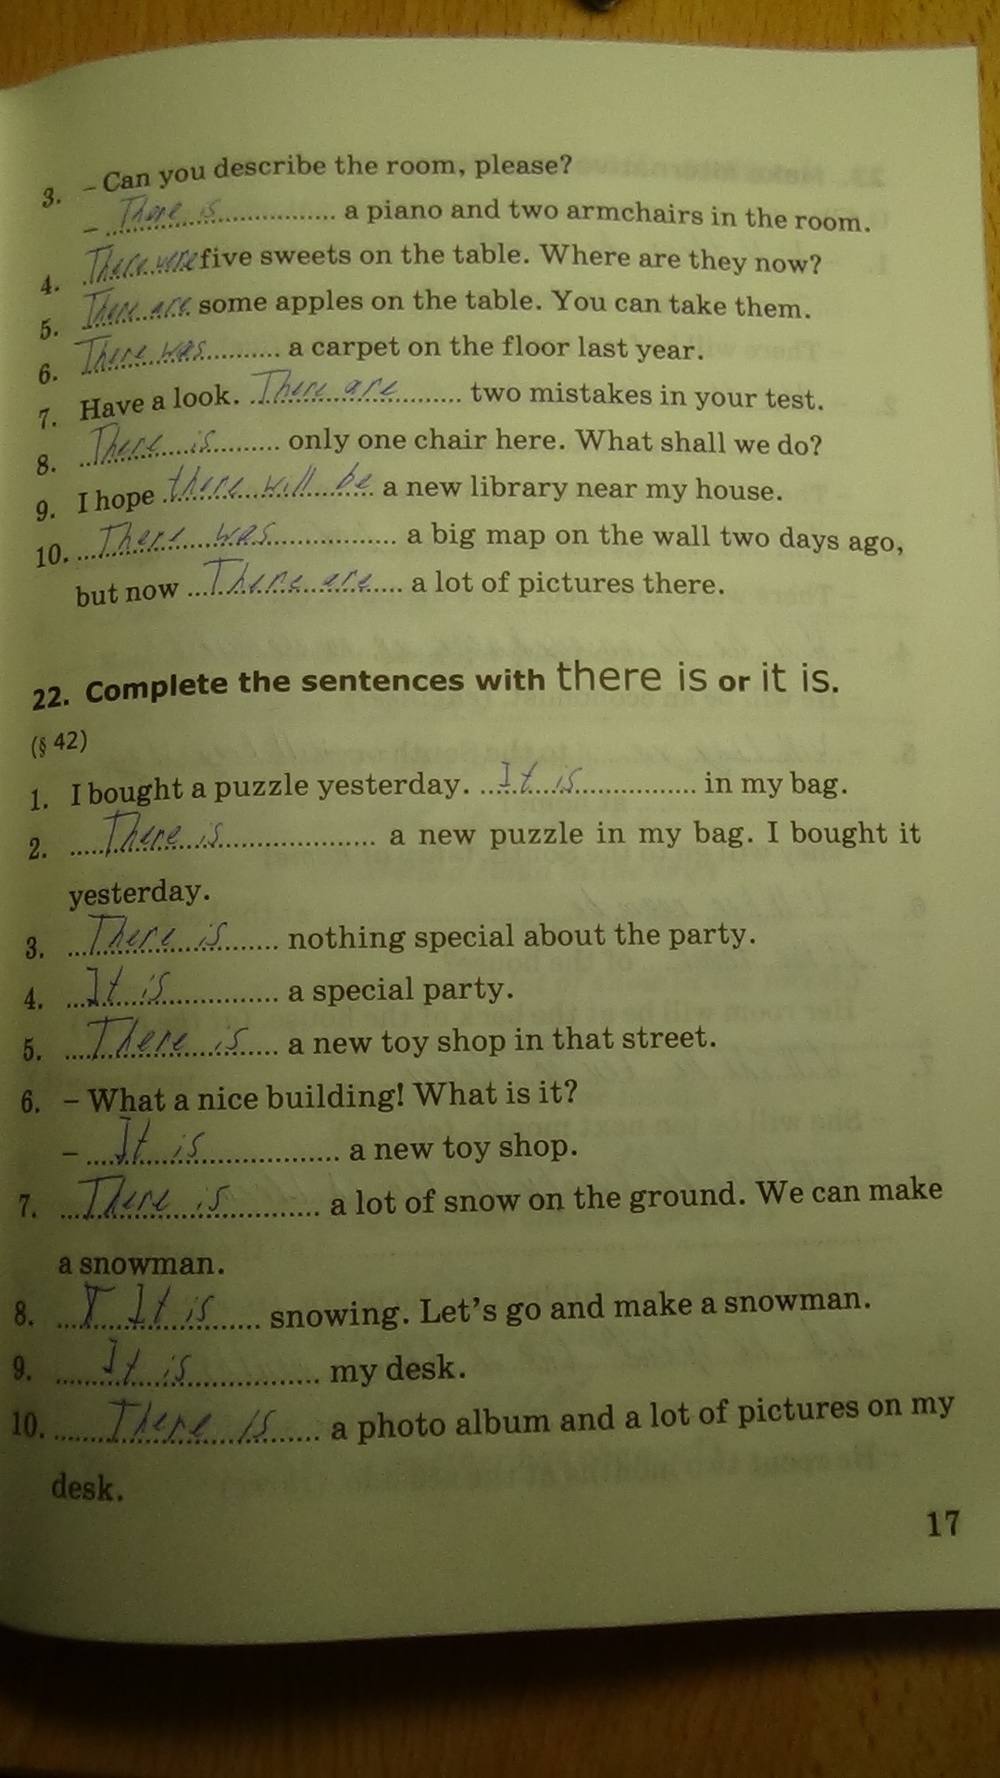 3. – Can you describe the room, please?
– There is a piano and two armchairs in the room.
4. There were five sweets on the table. Where are they now?
5. There are some apples on the table. You can take them.
6. There was a carpet on the floor last year.
7. Have a look. There are two mistakes in your test.
8. There is only one chair here. What shall we do?
9. I hope there will be a new library near my house.
10. There was a big map on the wall two days ago,
but now There are a lot of pictures there.
22. Complete the sentences with there is or it is.
(§ 42)
1. I bought a puzzle yesterday. It is in my bag.
2. There is a new puzzle in my bag. I bought it
yesterday.
3. There is nothing special about the party.
4. It is a special party.
5. There is a new toy shop in that street.
6. – What a nice building! What is it?
– It is a new toy shop.
7. There is a lot of snow on the ground. We can make
a snowman.
8. It is snowing. Let's go and make a snowman.
9. It is my desk.
10. There is a photo album and a lot of pictures on my
desk.
17